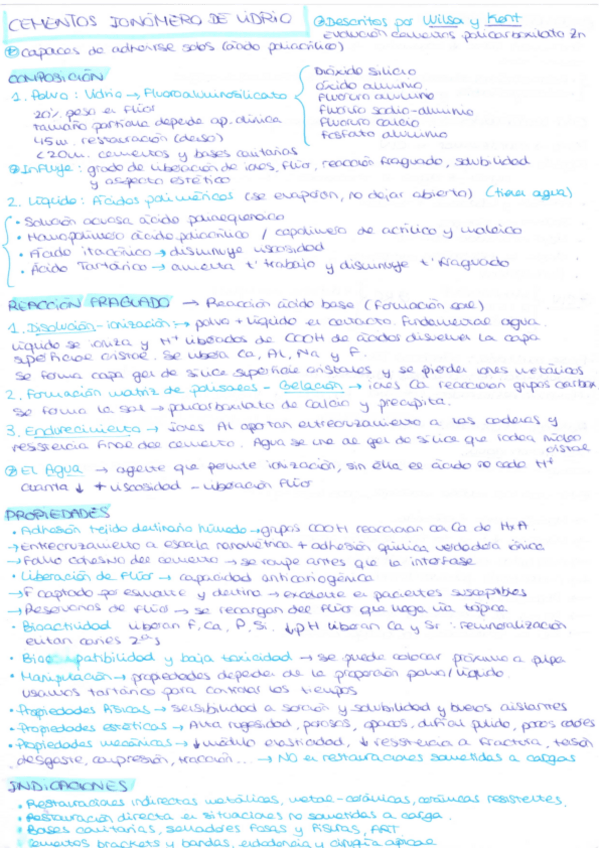 CEMENTOS IONÓMERO DE VIDRIO
Descritos por Wilson y Kent
evolución cementos policarboxilato Zn
capaces de adherirse solos (ácido poliacrílico)
COMPOSICIÓN
1. Polvo: Vidrio → Fluoroaluminosilicato
20% peso en flúor
tamaño partícula depende ap. clínica
45 m. restauración (denso)
<20 m. cementos y bases cavitarias
Dióxido silicio
óxido aluminio
Fluoruro aluminio
Fluoruro sodio-aluminio
Fluoruro calcio
Fosfato aluminio
Influye: grado de liberación de iones, flúor, reacción fraguado, solubilidad
y aspecto estético
2. Líquido: Ácidos poliméricos (se evaporan, no dejar abierto) (tiene agua)
• Solución acuosa ácido
• Homopolímero ácido poliacrílico / copolímero de acrílico y maleico
• Ácido itacónico → disminuye viscosidad
• Ácido Tartárico → aumenta t' trabajo y disminuye t' fraguado
REACCIÓN FRAGUADO → Reacción ácido base (formación sal)
1. Disolución-ionización: → polvo + líquido en contacto. Fundamental agua.
Líquido se ioniza y H+ liberados de COOH de ácidos disuelven la capa
superficial cristal. Se libera Ca, Al, Na y F.
Se forma capa gel de sílice superficie cristales y se pierden iones metálicos
2. Formación matriz de polisales - Gelación → iones Ca reaccionan grupos carbox
se forma la sal → policarboxilato de Calcio y precipita.
3. Endurecimiento → iones Al aportan entrecruzamiento a las cadenas y
resistencia final del cemento. Agua se une al gel de sílice que rodea núcleo
cristal
El Agua → agente que permite ionización, sin ella el ácido no cede H+
cuanta ↓ + viscosidad - liberación Flúor
PROPIEDADES
• Adhesión tejido dentinario húmedo → grupos COOH reaccionan con Ca de HxA
→ Entrecruzamiento a escala nanométrica + adhesión química verdadera iónica
→ Fallo cohesivo del cemento → se rompe antes que la interfase
• Liberación de Flúor → capacidad anticariogénica
→ F captado por esmalte y dentina → excelente en pacientes susceptibles
→ Reservorios de flúor → se recargan del flúor que haga vía tópica
• Bioactividad liberan F, Ca, P, Si. ↓pH liberan Ca y Sr : remineralización
evitan caries 2as
• Biocompatibilidad y baja toxicidad → se puede colocar próximo a pulpa
• Manipulación → propiedades dependen de la proporción polvo/líquido.
usamos tartárico para controlar los tiempos
• Propiedades físicas → sensibilidad a sorción y solubilidad y buenos aislantes
• Propiedades estéticas → Alta rugosidad, porosos, opacos, difícil pulido, pocos colores
• Propiedades mecánicas → ↓ módulo elasticidad, ↓ resistencia a fractura, tensión
desgaste, compresión, tracción... → NO en restauraciones sometidas a cargas
INDICACIONES
• Restauraciones indirectas metálicas, metal-cerámicas, cerámicas resistentes.
• Restauración directa en situaciones no sometidas a carga.
• Bases cavitarias, selladores fosas y fisuras, ART
• Cementos brackets y bandas, endodoncia y cirugía apical